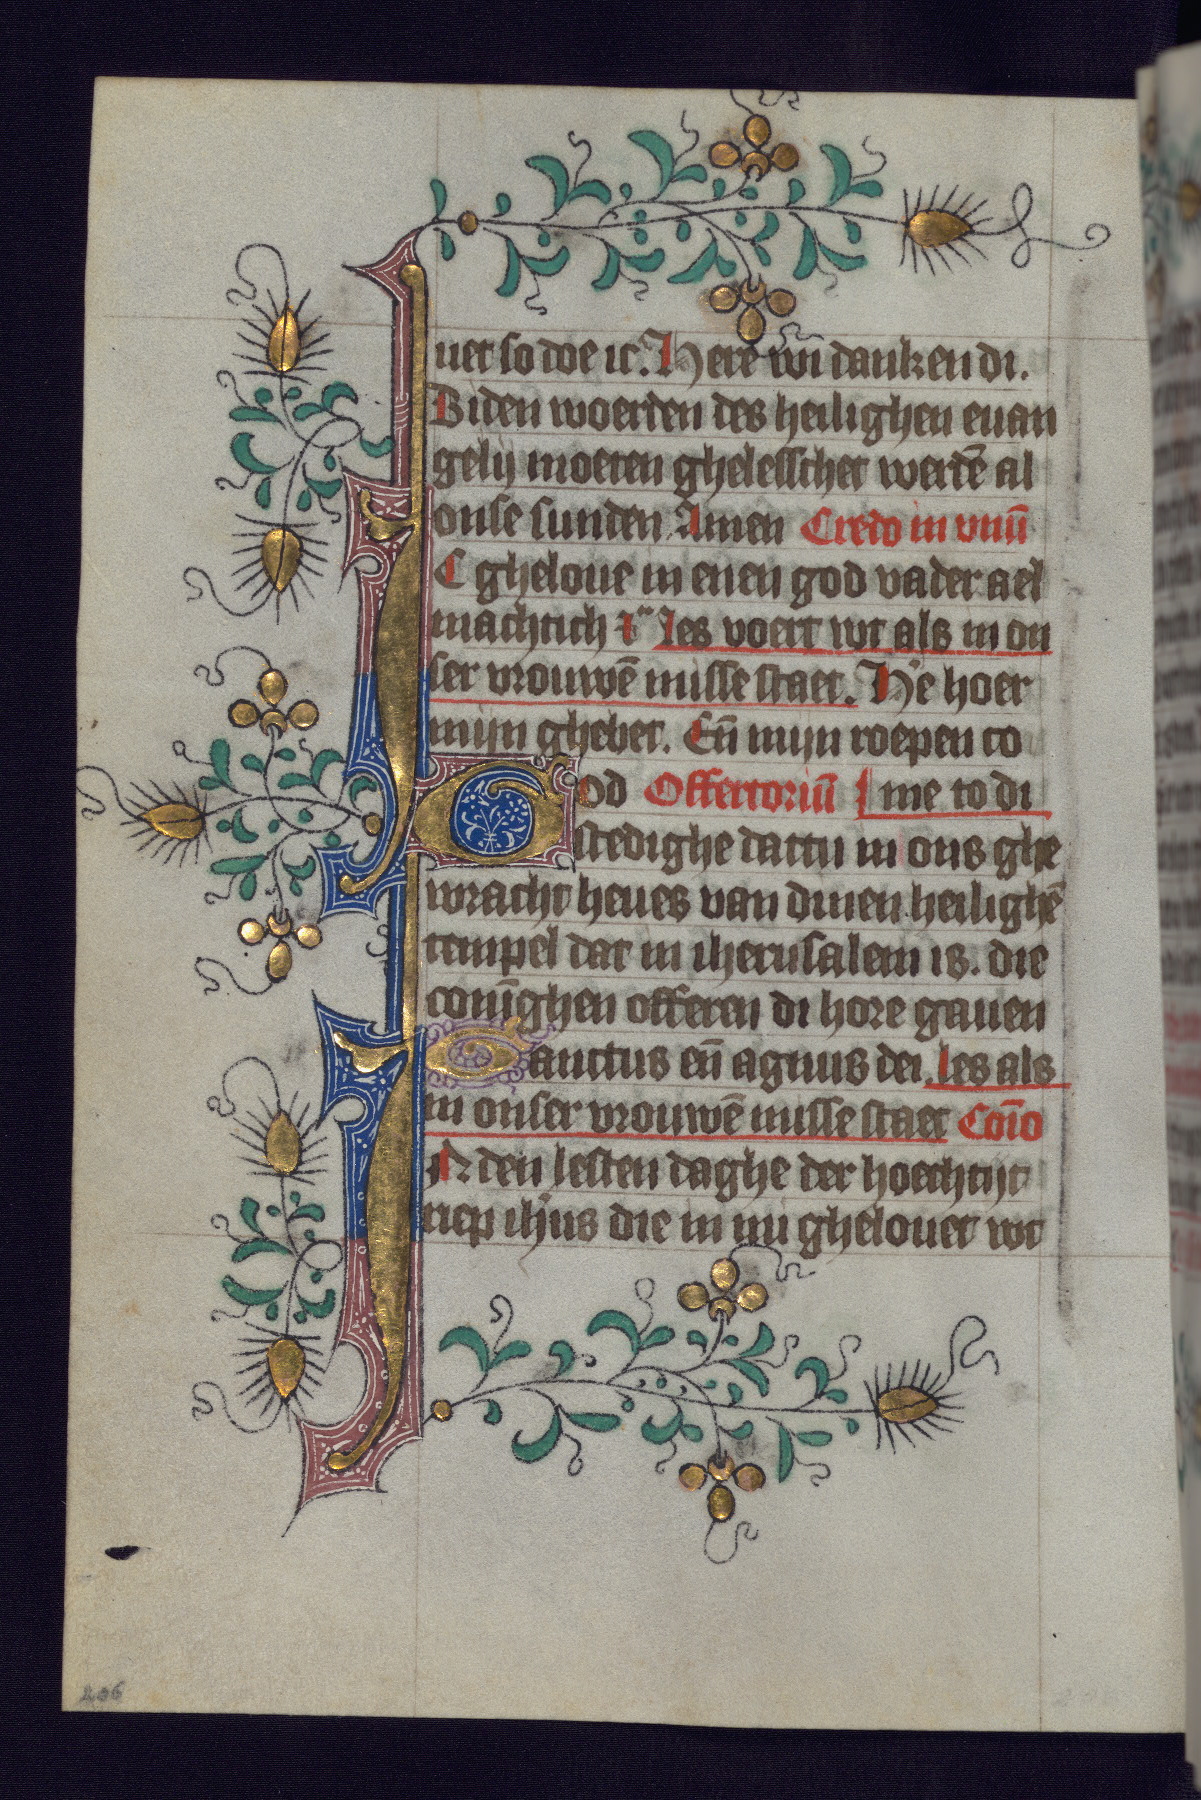 uet so doe ic. Here wi danken di.
Biden woerden des heilighen euan
gelij moeten ghelesschet werdē al
onse sunden Amen Credo in vnū
IC gheloue in enen god vader ael
machtich ꝛ̄ Les voert wt als in on
ser vrouwē misse staet. H'e hoer
mijn ghebet. Eñ mijn roepen to
God Offertoriū Ime to di
stedighe dattu in ons ghe
wracht heues van dinen heilighē
tempel dat in iherusalem is. die
conīghen offeren di hore gauen
Sanctus eñ agnus dei. les als
in onser vrouwē misse staet Cōio
IN den lesten daghe der hoechtijt
riep ihūs die in mi ghelouet wt
206